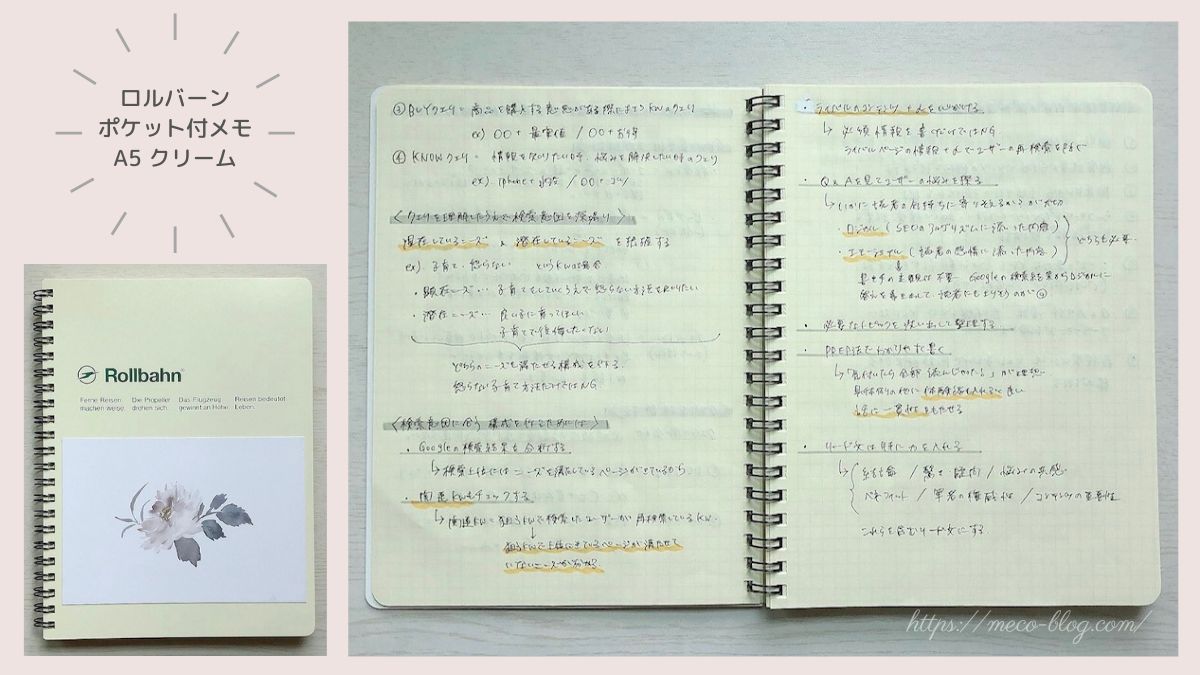 ロルバーン
ポケット付メモ
A5 クリーム
Rollbahn
Ferne Reisen machen weise.
Die Propeller drehen sich.
Das Flugzeug gewinnt an Höhe.
Reisen bedeutet Leben.
③ BUYクエリ: 商品を購入する意思がある際に使うKWのクエリ
ex) 〇〇+ 最安値 / 〇〇+お得
④ KNOWクエリ: 情報を知りたい時、悩みを解決したい時のクエリ
ex) iphone+ / 〇〇+
〈クエリを理解したうえで検索意図を深掘り〉
顕在しているニーズ と 潜在しているニーズ を把握する
ex) 子育て、怒らない というKWの場合
・顕在ニーズ… 子育てをしていくうえで怒らない方法を知りたい
・潜在ニーズ… 良い子に育ってほしい
子育てで後悔したくない
どちらのニーズも満たせる構成を作る。
怒らない子育て方法だけではNG
〈検索意図に合う構成を作るためには〉
・Googleの検索結果を分析する
↳検索上位にはニーズを満たしているページがでているから
・関連KWもチェックする
↳関連KW=狙うKWで検索したユーザーが再検索しているKW.
↓
狙うKWで上位にきているページが満たせて
いないニーズが分かる
・ライバルのコンテンツ+αを心がける
↳ 必須情報を書くだけではNG
ライバルページの情報+αでユーザーの再検索を
・Q&Aを見てユーザーの悩みを探る
↳いかに読者の気持ちに寄りそえるかが大切
・ロジカル (SEOのアルゴリズムに添った内容)
・エモーショナル (読者の感情に添った内容)
どちらも必要
書き手の主観は不要。Googleの検索結果からロジカルに
・必要なトピックを洗い出して整理する
・PREP法でわかりやすく書く
↳「気付いたら全部読んじゃった!」が理想.
具体例の他に体験談も入れると良い
話に一貫性をもたせる
・リード文は特に力を入れる
↳ 結論 / 驚き・疑問 / 悩みの共感
ベネフィット / 筆者の権威性 / コンテンツの重要性
これらを含むリード文にする
https://meco-blog.com/